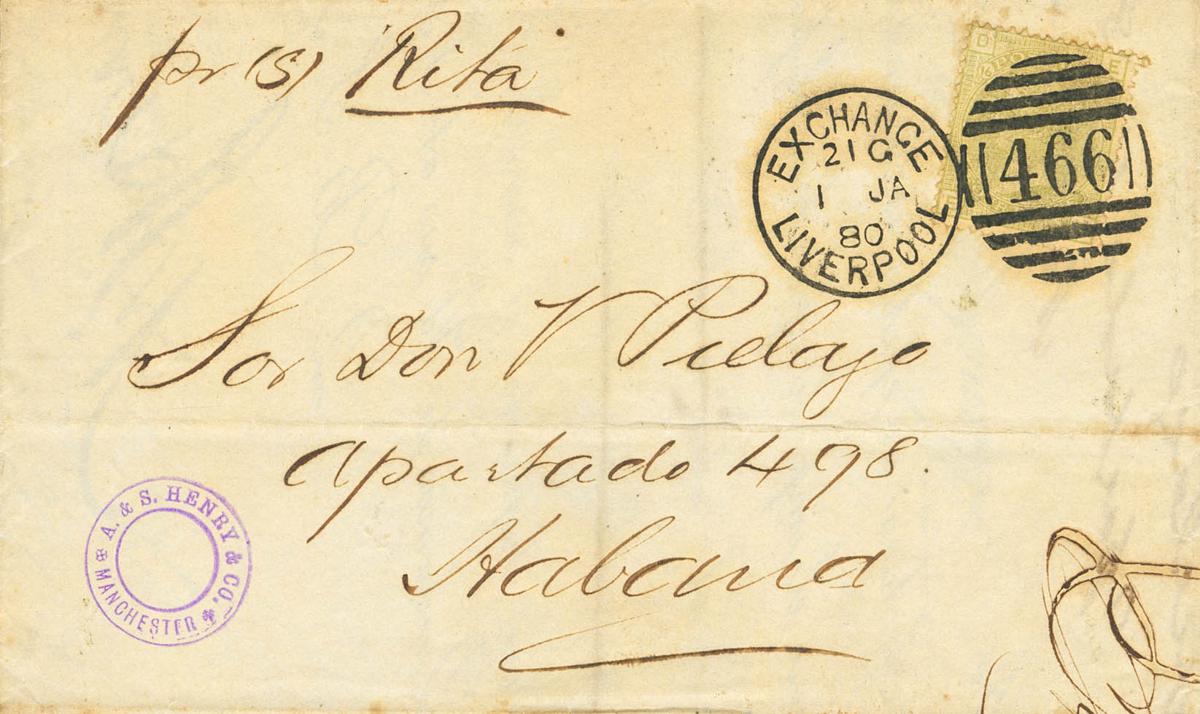 pr (S) Rita
EXCHANGE
21 G
1 JA
80
LIVERPOOL
466
Sor Don V Pielago
Apartado 498.
Habana
A. & S. HENRY & CO.
MANCHESTER